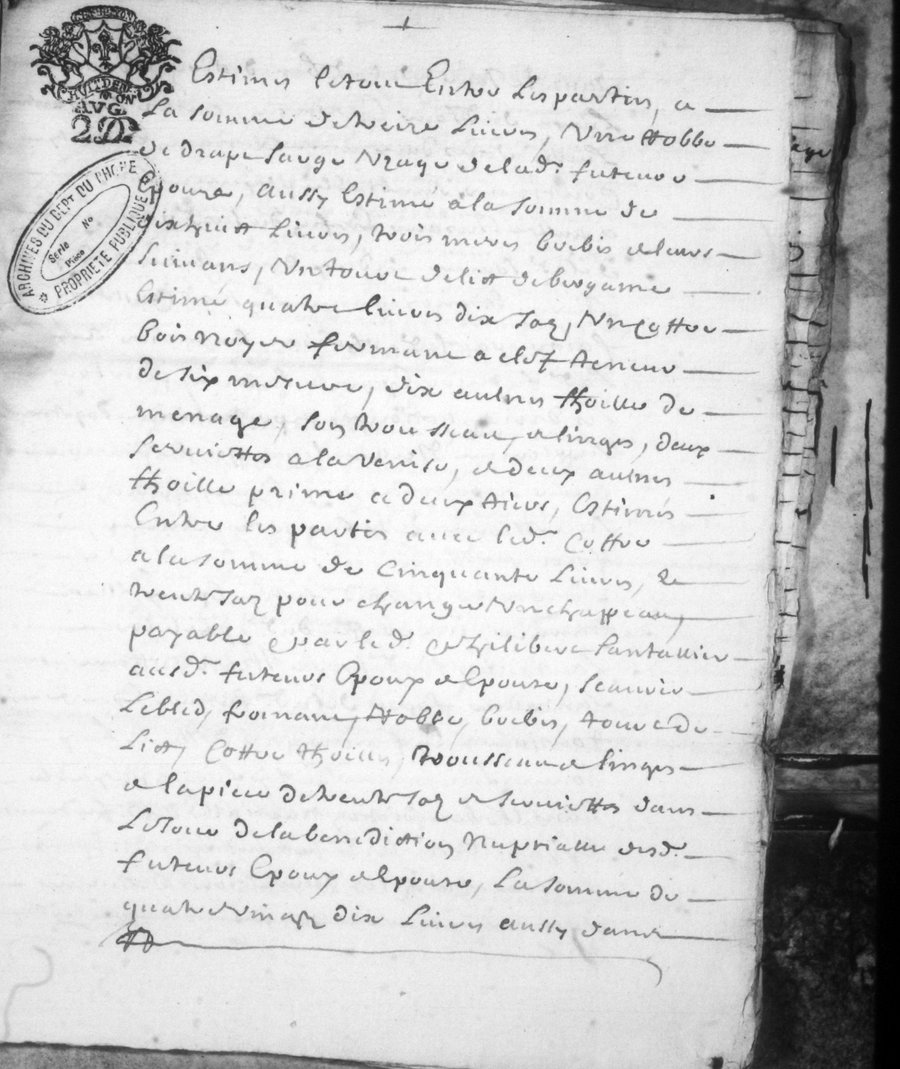 HUIT DEN
AVG. ON
2D
ARCHIVES DU DEPT DU RHONE
Serie No
Piece
* PROPRIETE PUBLIQUE *
Estimes letout Entre Les parties, a
La somme de treize Livres, Une Robbe
de drapt sauge Usage de lad. future
Epouze, aussy Estimé a la somme de
dixhuict Livres, trois meres brebis et leurs
suivans, Un tour de lict de bergame
Estimé quatre livres dix solz, Un coffre
bois noyer fermant a clef teneur
de six mesures, dix aulnes thoille de
menage, son trousseau, et linges, deux
serviettes a la Venise, et deux autres
thoille prime et deux tiers, Estimés
Entre les parties avec led. Coffre
a la somme de Cinquante Livres, Et
trente solz pour change Un chappeau,
payable par led. Philibert
ausd. futurs Epoux et Epouse, scavoir
Lebled, froment, Robbe, brebis, tour de
Lict, Coffre thoille, trousseau et linges
et la piece de trente solz et serviettes dans
Le Jour de la benediction Nuptialle desd.
futurs Epoux et Epouse, La somme de
quatre vingtz dix Livres aussy dans